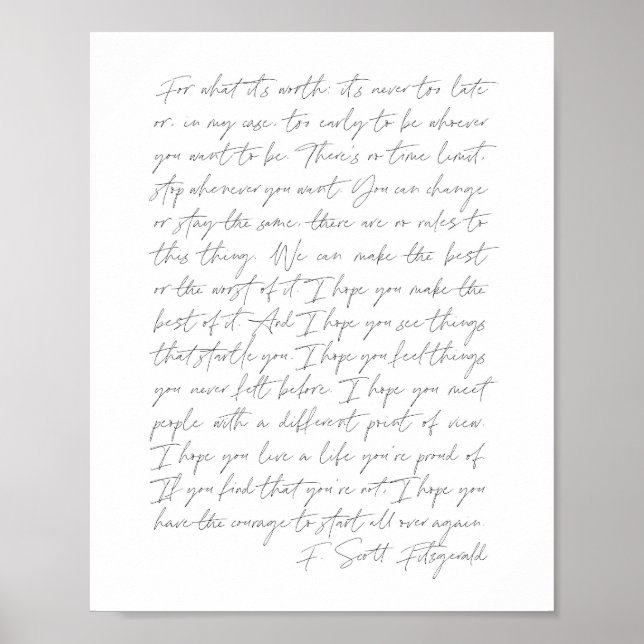 For what it's worth: it's never too late
or, in my case, too early to be whoever
you want to be. There's no time limit,
stop whenever you want. You can change
or stay the same, there are no rules to
this thing. We can make the best
or the worst of it. I hope you make the
best of it. And I hope you see things
that startle you. I hope you feel things
you never felt before. I hope you meet
people with a different point of view.
I hope you live a life you're proud of.
If you find that you're not, I hope you
have the courage to start all over again.
F. Scott Fitzgerald